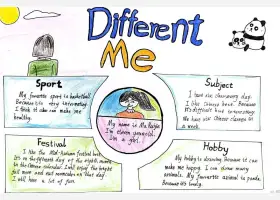 Different
Me
Sport
My favorite sport is basketball.
Because it's very interesting.
I think it can make me
healthy.
Subject
I have six classes every day.
I like Chinese best. Because
It's difficult but interesting.
We have six Chinese classes in
a week.
My name is Ma
I'm eleven years old.
I'm a girl.
Festival
I like the Mid-Autumn festival best.
It's on the fifteenth day of the eighth month
in the Chinese calendar. I will enjoy the bright
full moon and eat mooncakes on that day.
I will have a lot of fun.
Hobby
My hobby is drawing because it can
make me happy. I can draw many
animals. My favourite animal is panda.
Because it's lovely.